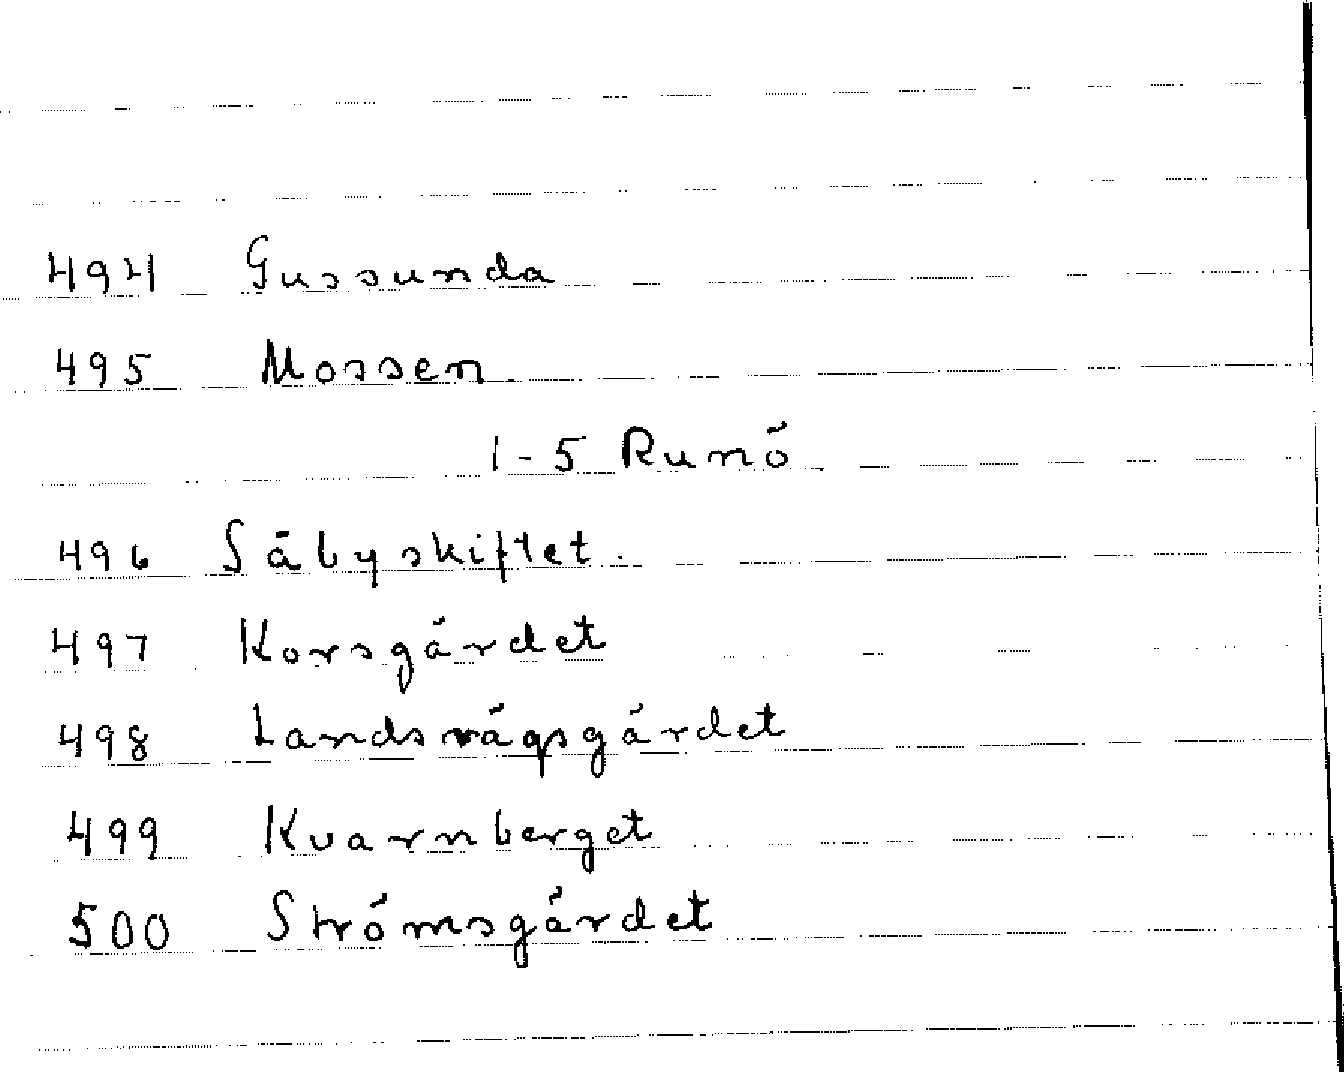 494 Gussunda
495 Mossen
1-5 Runö
496 Säbyskiftet.
497 Korsgärdet
498 Landsvägsgärdet
499 Kvarnberget
500 Strömsgärdet